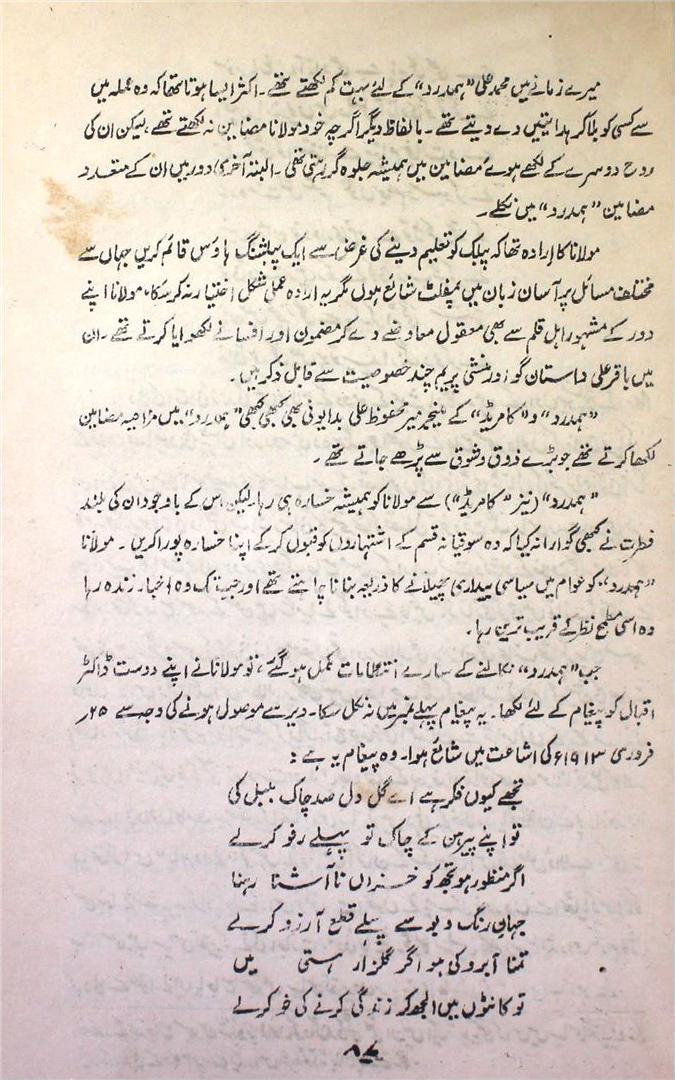 میرے زمانے میں محمد علی "ہمدرد" کے لئے بہت کم لکھتے تھے۔ اکثر ایسا ہوتا تھا کہ وہ عملہ میں
سے کسی کو بلا کر ہدایتیں دے دیتے تھے۔ بالفاظ دیگر اگرچہ خود مولانا مضامین نہ لکھتے تھے، لیکن ان کی
روح دوسرے کے لکھے ہوئے مضامین میں ہمیشہ جلوہ گر رہتی تھی۔ البتہ آخری دور میں ان کے متعدد
مضامین "ہمدرد" میں نکلے۔
مولانا کا ارادہ تھا کہ پبلک کو تعلیم دینے کی غرض سے ایک پبلشنگ ہاؤس قائم کریں جہاں سے
مختلف مسائل پر آسان زبان میں پمفلٹ شائع ہوں مگر یہ ارادہ عملی شکل اختیار نہ کر سکا، مولانا اپنے
دور کے مشہور اہل قلم سے بھی معقول معاوضے دے کر مضمون اور افسانے لکھوایا کرتے تھے۔ ان
میں باقر علی داستان گو اور منشی پریم چند خصوصیت سے قابل ذکر ہیں۔
"ہمدرد" و "کامریڈ" کے مینیجر میر محفوظ علی بدایونی بھی کبھی کبھی "ہمدرد" میں مزاحیہ مضامین
لکھا کرتے تھے جو بڑے ذوق و شوق سے پڑھے جاتے تھے۔
"ہمدرد" (نیز "کامریڈ") سے مولانا کو ہمیشہ خسارہ ہی رہا۔ لیکن اس کے باوجود ان کی بلند
فطرت نے کبھی گوارا نہ کیا کہ وہ سوقیانہ قسم کے اشتہاروں کو قبول کر کے اپنا خسارہ پورا کریں۔ مولانا
"ہمدرد" کو عوام میں سیاسی بیداری پھیلانے کا ذریعہ بنانا چاہتے تھے اور جب تک وہ اخبار زندہ رہا
وہ اسی مطمح نظر کے قریب ترین رہا۔
جب "ہمدرد" نکالنے کے سارے انتظامات مکمل ہو گئے، تو مولانا نے اپنے دوست ڈاکٹر
اقبال کو پیغام کے لئے لکھا۔ یہ پیغام پہلے نمبر میں نہ نکل سکا۔ دیر سے موصول ہونے کی وجہ سے ۲۵؍
فروری ۱۹۱۳ء کی اشاعت میں شائع ہوا۔ وہ پیغام یہ ہے :
تجھے کیوں فکر ہے اے گل دل صد چاک بلبل کی
تو اپنے پیرہن کے چاک تو پہلے رفو کرلے
اگر منظور ہو تجھ کو خزاں نا آشنا رہنا
جہانِ رنگ و بو سے پہلے قطع آرزو کرلے
تمنا آبرو کی ہو اگر گلزار ہستی میں
تو کانٹوں میں الجھ کر زندگی کرنے کی خو کرلے
۸۷